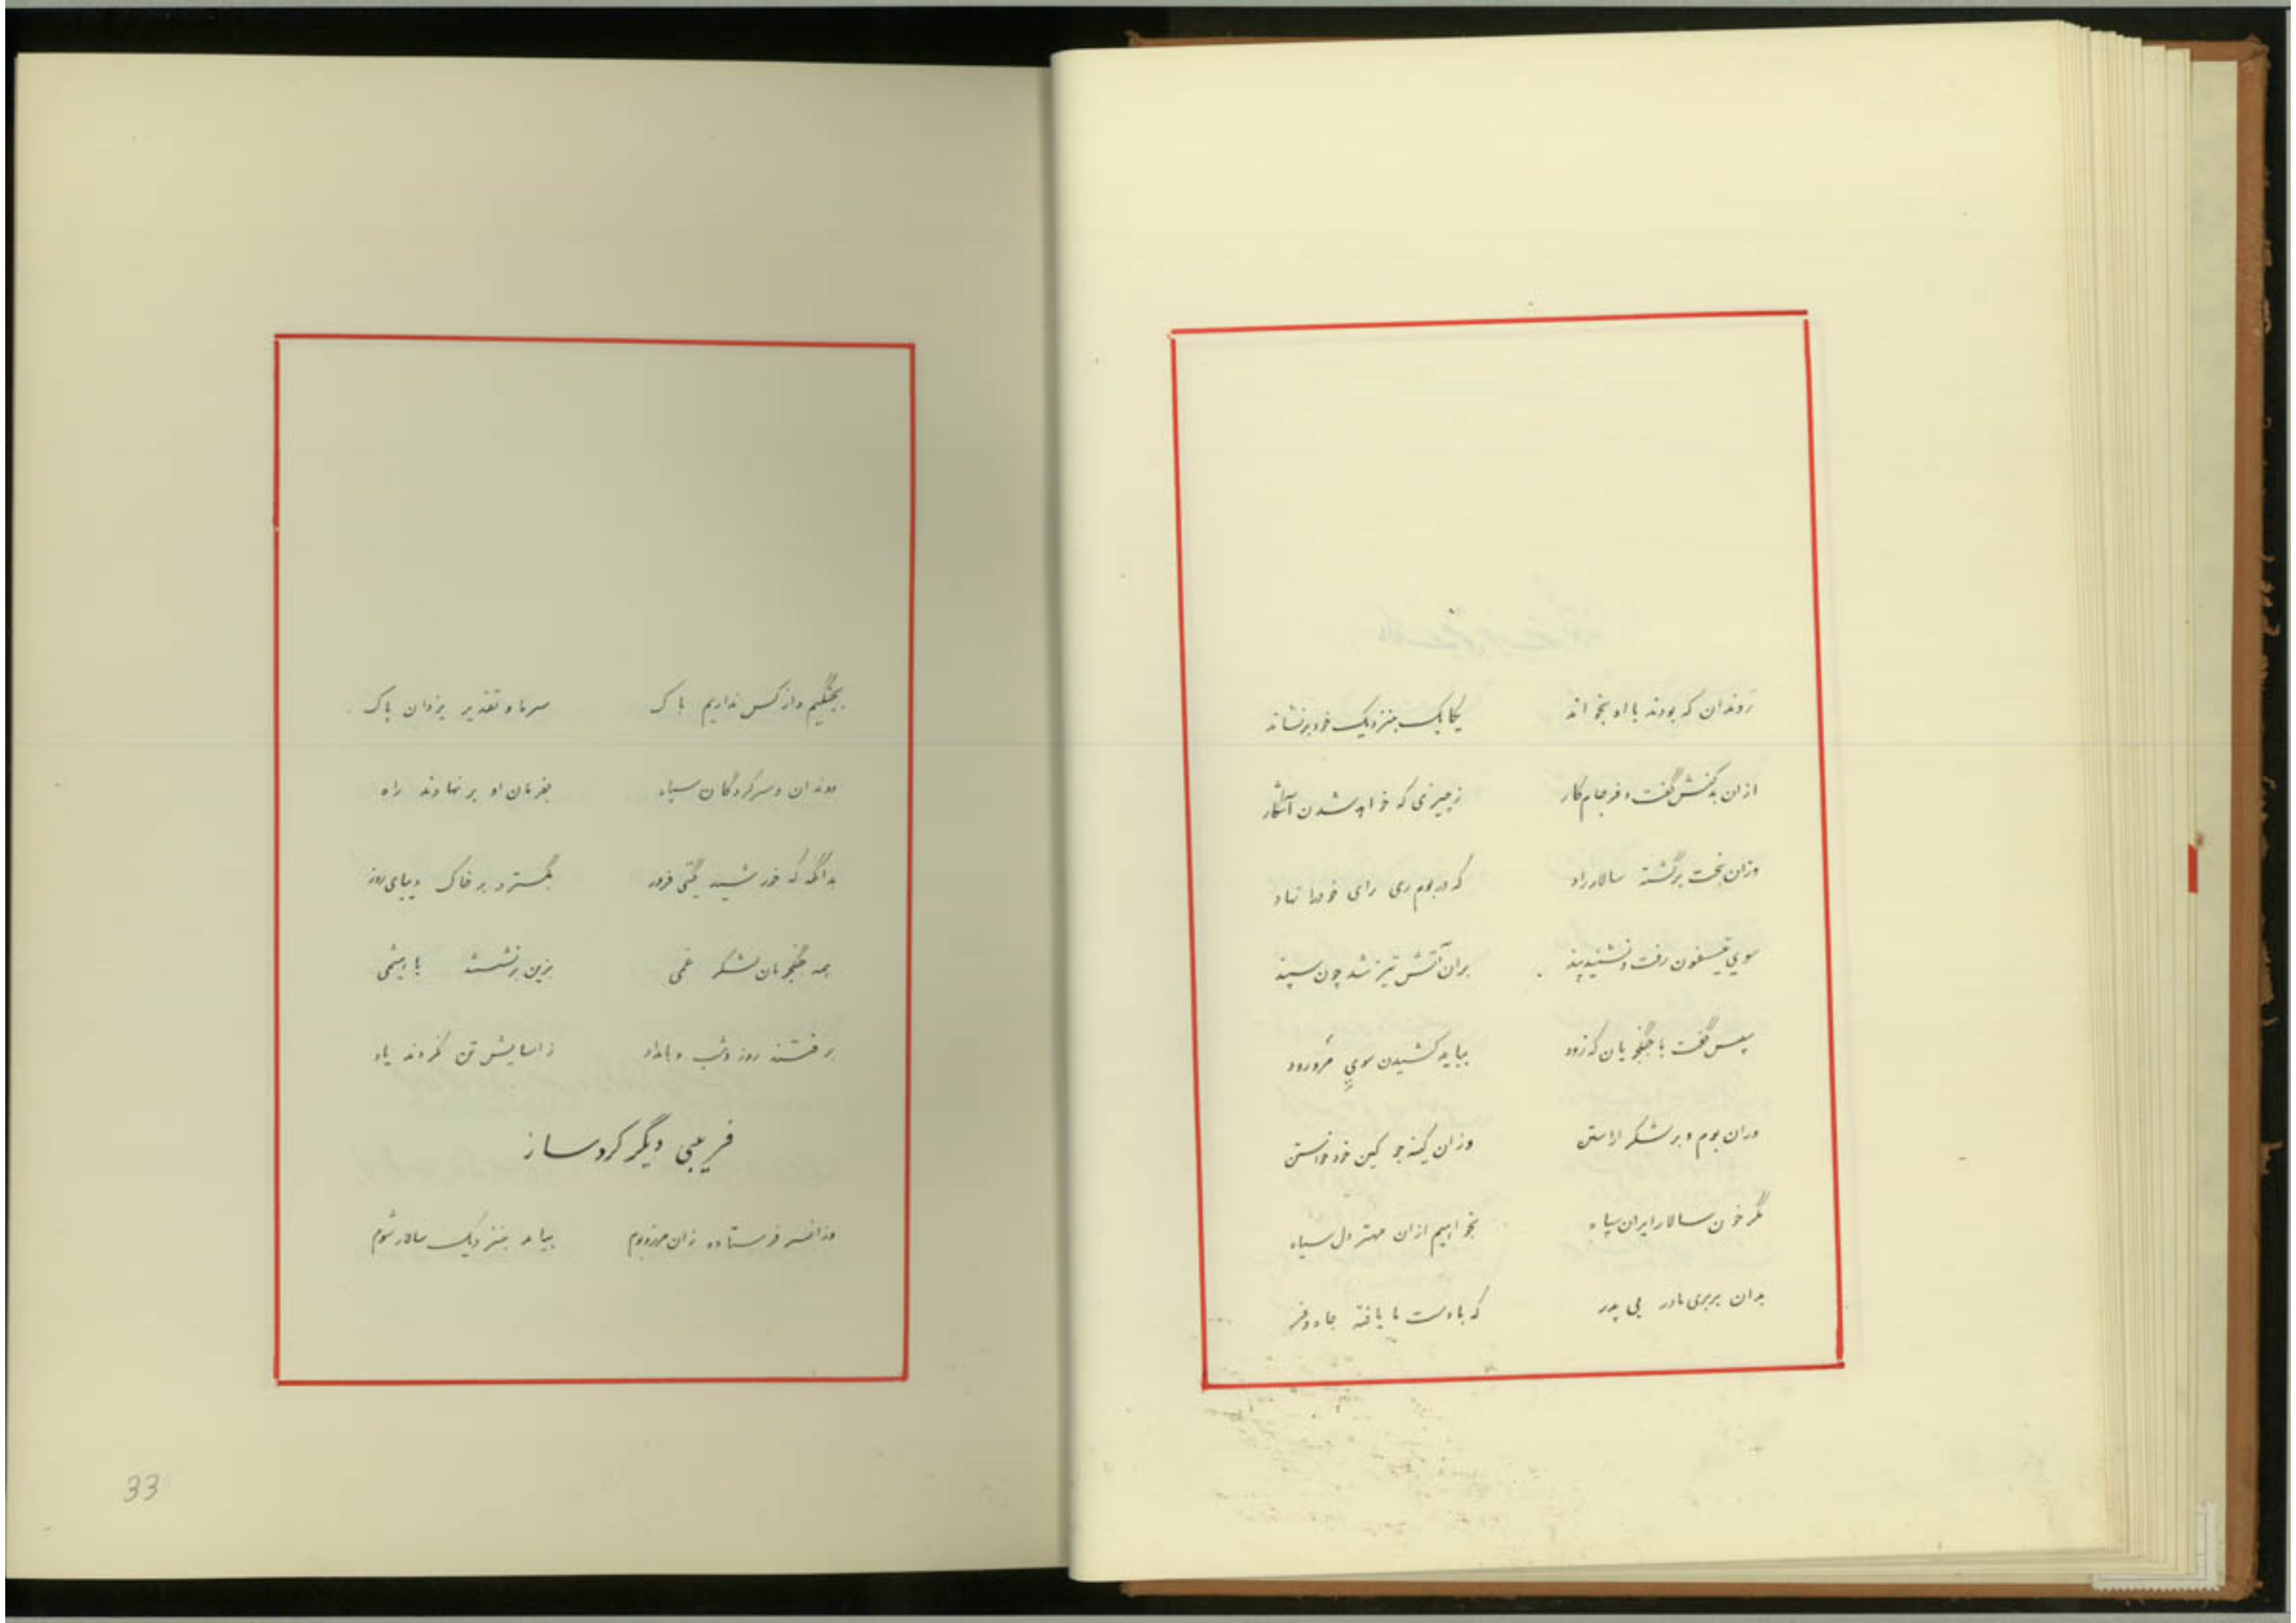 روندان که بودند با او بخواند یکایک بنزدیک خود برنشاند
ازان بدکنش گفت و فرجام کار زچیزی که خواهد شدن آشکار
وزان بخت برگشته سالار راد که در بوم ری رای خود را نهاد
سوی تیسفون رفت و نشنید پند بران آتش تیز شد چون سپند
سپس گفت با جنگجویان که زود بباید کشیدن سوی مرورود
دران بوم و بر لشکر اراستن وزان کینه جو کین خود خواستن
مگر خون سالار ایران سپاه بخواهیم ازان مهتر دل سیاه
بدان بربری مادر بی پدر که بادست ما یافته جاه و فر
بجنگیم و از کس نداریم باک سر ما و تقدیر یزدان پاک
روندان و سرکردگان سپاه بفرمان او بر نهادند راه
بدانگه که خورشید گیتی فروز بگسترد بر خاک دیبای روز
همه جنگجویان لشکر غمی بزین برنشستند با
برفتند روز و شب و بامداد ز اسایش تن نکردند یاد
فریبی دیگر کرد ساز
وزانسر فرستاده زان مرزوبوم بیامد بنزدیک سالار شوم
33